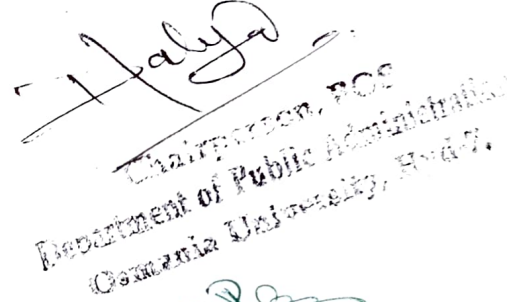 Chairperson, BOS
Department of Public Administration
Osmania University, Hyd-7.